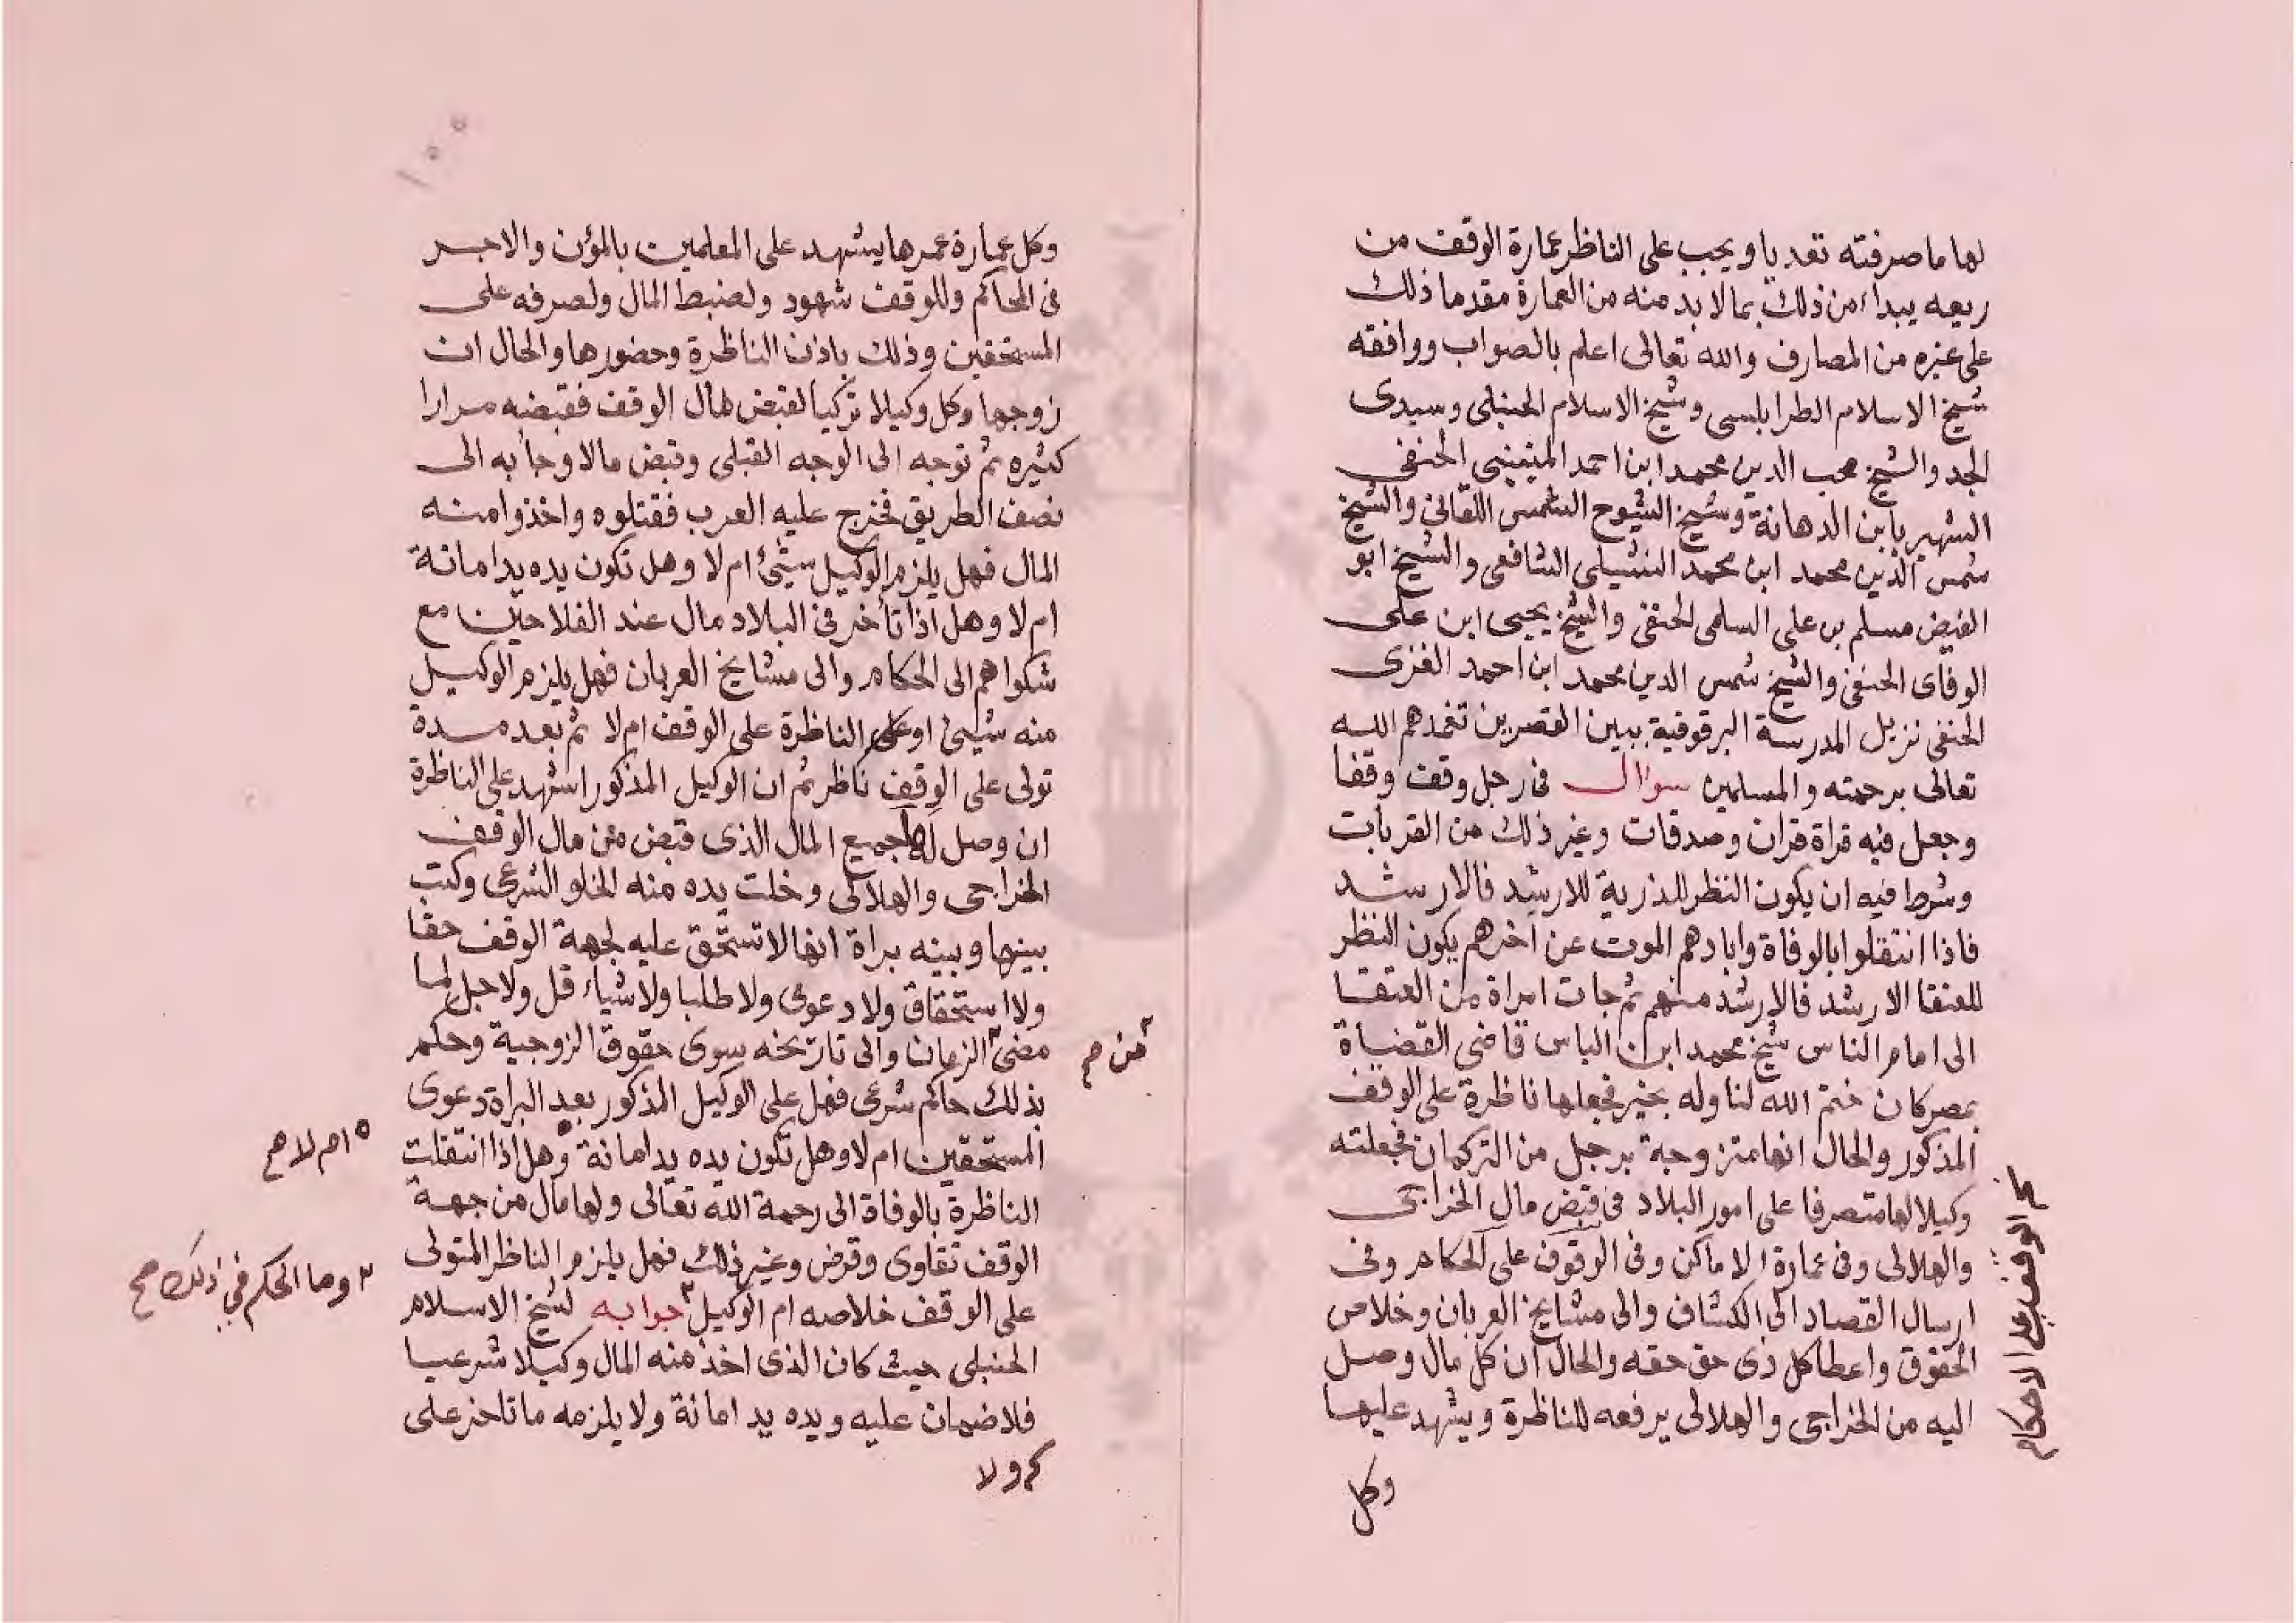 لها ما صرفته تعديا ويجب على الناظر عمارة الوقف من
ريعه يبداء من ذلك بما لا بد منه من العمارة مقدما ذلك
على غيره من المصارف والله تعالى اعلم بالصواب ووافقه
شيخ الاسلام الطرابلسى وشيخ الاسلام الحنبلى وسيدى
الجد والشيخ محب الدين محمد ابن احمد الحنفى
الشهير بابن الدهانة وشيخ الشيوخ الشمس اللقانى والشيخ
شمس الدين محمد ابن محمد النشيلى الشافعى والشيخ ابو
الفيض مسلم بن على السلمى الحنفى والشيخ يحيى ابن على
الوفاى الحنفى والشيخ شمس الدين محمد ابن احمد الغزى
الحنفى نزيل المدرسة البرقوقية ببين القصرين تغمدهم الله
تعالى برحمته والمسلمين سوال فى رجل وقف وقفا
وجعل فيه قراة قران وصدقات وغير ذلك من القربات
وشرط فيه ان يكون النظر للذرية للارشد فالارشد
فاذا انتقلوا بالوفاة وابادهم الموت عن اخرهم يكون النظر
للعتقا الارشد فالارشد منهم ثم جات امراة من العتقا
الى امام الناس شيخ محمد ابن الياس قاضى القضاة
بمصر كان ختم الله لنا وله بخير فجعلها ناظرة على الوقف
المذكور والحال انها متزوجة برجل من التركمان فجعلته
وكيلا لها متصرفا على امور البلاد فى قبض مال الخراجى
والهلالى وفى عمارة الاماكن وفى الوقوف على الحكام وفى
ارسال القصاد الى الكشاف والى مشايخ العربان وخلاص
الحقوق واعطا كل ذى حق حقه والحال ان كل مال وصل
اليه من الخراجى والهلالى يرفعه للناظرة ويشهد عليها
وكل
الوقف على الاحكام
وكل عمارة عمرها يشهد على المعلمين بالمؤن والاجر
فى المحاكم وللوقف شهود ولضبط المال ولصرفه على
المستحقين وذلك باذن الناظرة وحضورها والحال ان
زوجها وكل وكيلا تركيا لقبض مال الوقف فقبضه مرارا
كثيره ثم توجه الى الوجه القبلى وقبض مالا وجأ به الى
نصف الطريق فخرج عليه العرب فقتلوه واخذوا منه
المال فهل يلزم الوكيل شيئ ام لا وهل تكون يده يد امانة
ام لا وهل اذا تأخر فى البلاد مال عند الفلاحين مع
شكواهم الى الحكام والى مشايخ العربان فهل يلزم الوكيل
منه شيئ او على الناظرة على الوقف ام لا ثم بعد مدة
تولى على الوقف ناظر ثم ان الوكيل المذكور اشهد على الناظرة
ان وصل لها جميع المال الذى قبض من مال الوقف
الخراجى والهلالى وخلت يده منه الخلو الشرعى وكتب
بينها وبينه براة انها لا تستحق عليه لجهة الوقف حقا
ولا استحقاق ولا دعوى ولا طلبا ولا شياء قل ولا جل لما
مضى الزمان والى تاريخه سوى حقوق الزوجية وحكم
من صح
بذلك حاكم شرعى فهل على الوكيل المذكور بعد البراة دعوى
المستحقين ام لا وهل تكون يده يد امانة وهل اذا انتقلت
ام لا صح
الناظرة بالوفاة الى رحمة الله تعالى ولها مال من جهة
الوقف تقاوى وقرض وغير ذلك فهل يلزم الناظر المتولى
على الوقف خلاصه ام الوكيل جوابه لشيخ الاسلام
وما الحكم فى ذلك صح
الحنبلى حيث كان الذى اخذ منه المال وكيلا شرعيا
فلا ضمان عليه ويده يد امانة ولا يلزمه ما تاخر على